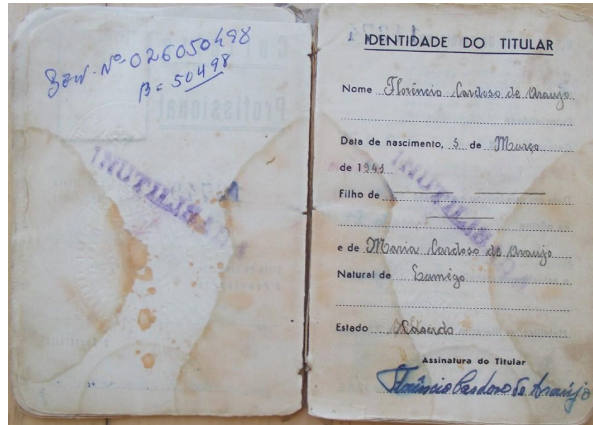 Nº 026050498
B= 50498
INUTILIZADO
IDENTIDADE DO TITULAR
Nome Florêncio Cardoso de Araujo
Data de nascimento, 5 de Março
de 1941
Filho de
e de Maria Cardoso de Araujo
Natural de Lamêgo
Estado
Assinatura do Titular
Florêncio Cardoso de Araújo